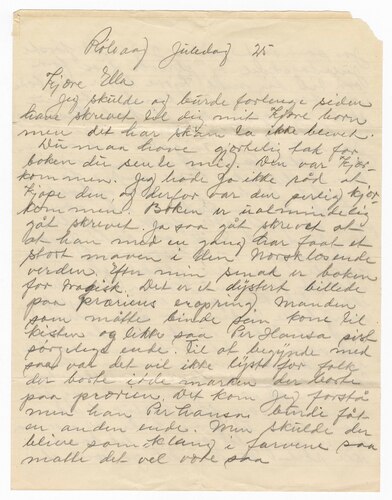 Rölvaag Juledag 25
Kjære Ella
Jeg skulde og burde forlænge siden
have skrevet til dig mit Kjære barn
men det har ikke blevet.
Du maa have hjertelig tak for
boken du sendte mig. Den var kjær-
kommen. Jeg hade jo ikke råd at
kjøpe den, og derfor var den særlig kjær
kommen. Boken er ualmindelig
gåt skrevet. Ja saa gåt skrevet at
at han med en gang har faat et
stort navn i den Norsklæsende
verden. Efter min smak er boken
for tragisk. Det er et dystert billede
paa præriens erobring. Manden
som måtte binde sin kone til
kisten og likke saa Per Hansa sist
sørgelige ende. Til at begynde med
saa var det vel ikke lyst for folk
der borte i marken der borte
paa prærien. Det kan jeg forstå
men han Per Hansa burde fåt
en anden ende. Men skulde der
blive som klang i farvene saa
måtte det vel være saa